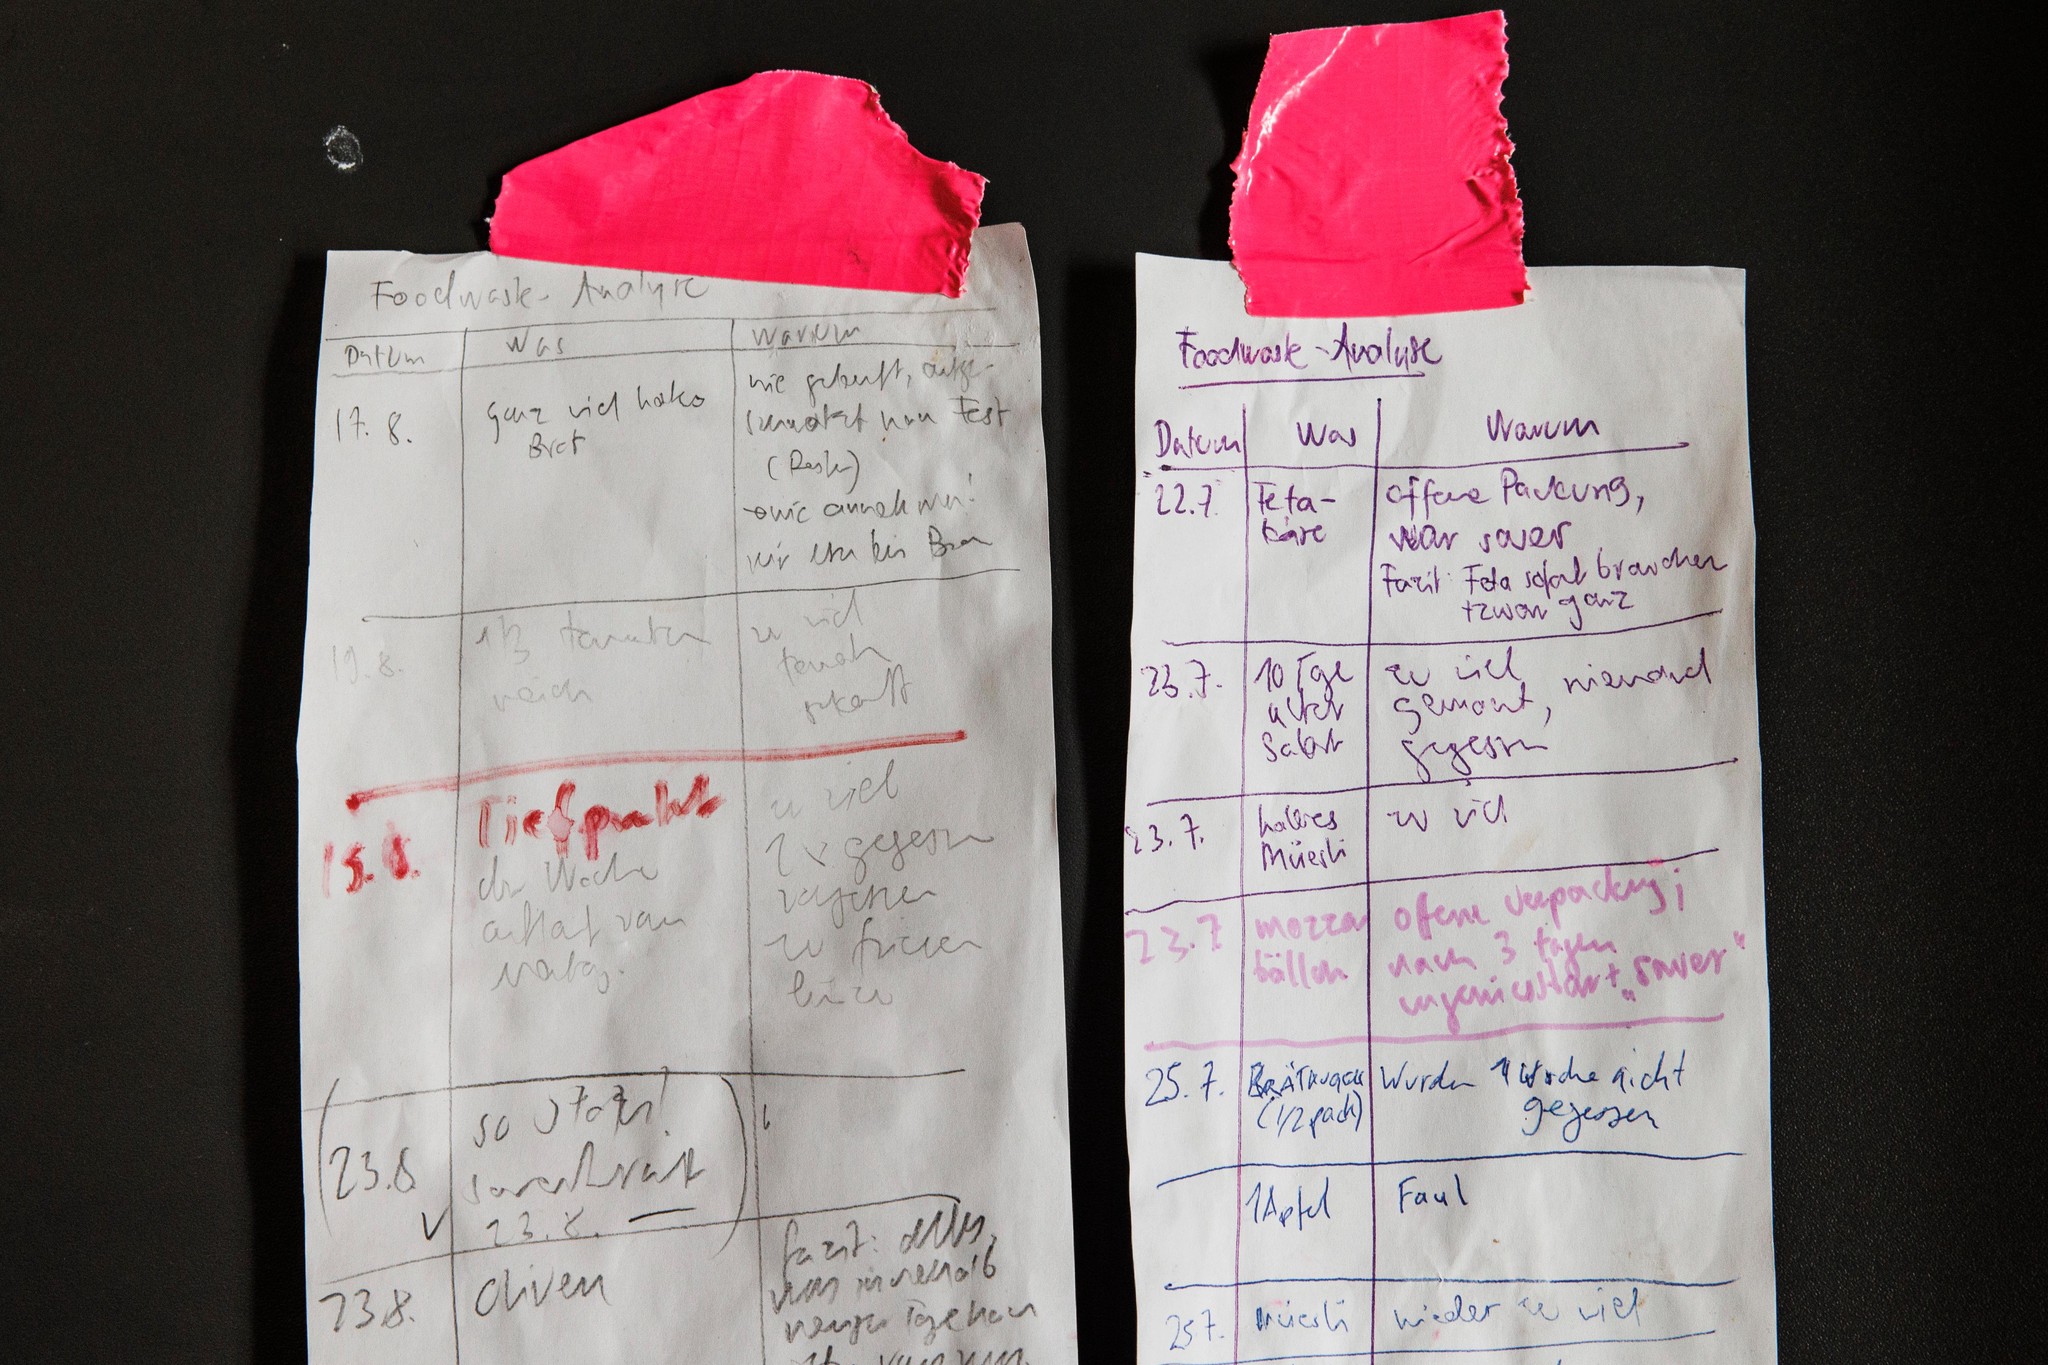 Foodwaste-Analyse
Datum Was Warum
17.8. ganz viel
Brot
nie gekauft, aufge-
schwatzt von Fest
(Reste)
→nie annehmen!
wir
19.8. 1/3 Tomaten
weich
zu viel
gekauft
Tiefpunkt
der Woche
19.8.
zu viel
1x gegessen
vergessen
zu
23.8 so stolz!
Sauerkraut
23.8.
23.8. Oliven
Fazit: alles,
was innerhalb
weniger Tage
Foodwaste-Analyse
Datum Was Warum
22.7. Feta-
käse
offene Packung,
war sauer
Fazit: Feta sofort brauchen
+zwar ganz
23.7. 10 Tage
alter
Salat
zu viel
gemacht, niemand
gegessen
23.7. halbes
Müesli
zu viel
23.7 mozzar
bällch
offene verpackung;
nach 3 tagen
ungeniessbar + "sauer"
25.7. BRÄTKUGELN
(1/2 pack)
Wurden 1 Woche nicht
gegessen
1 Apfel Faul
25.7. Müesli wieder zu viel